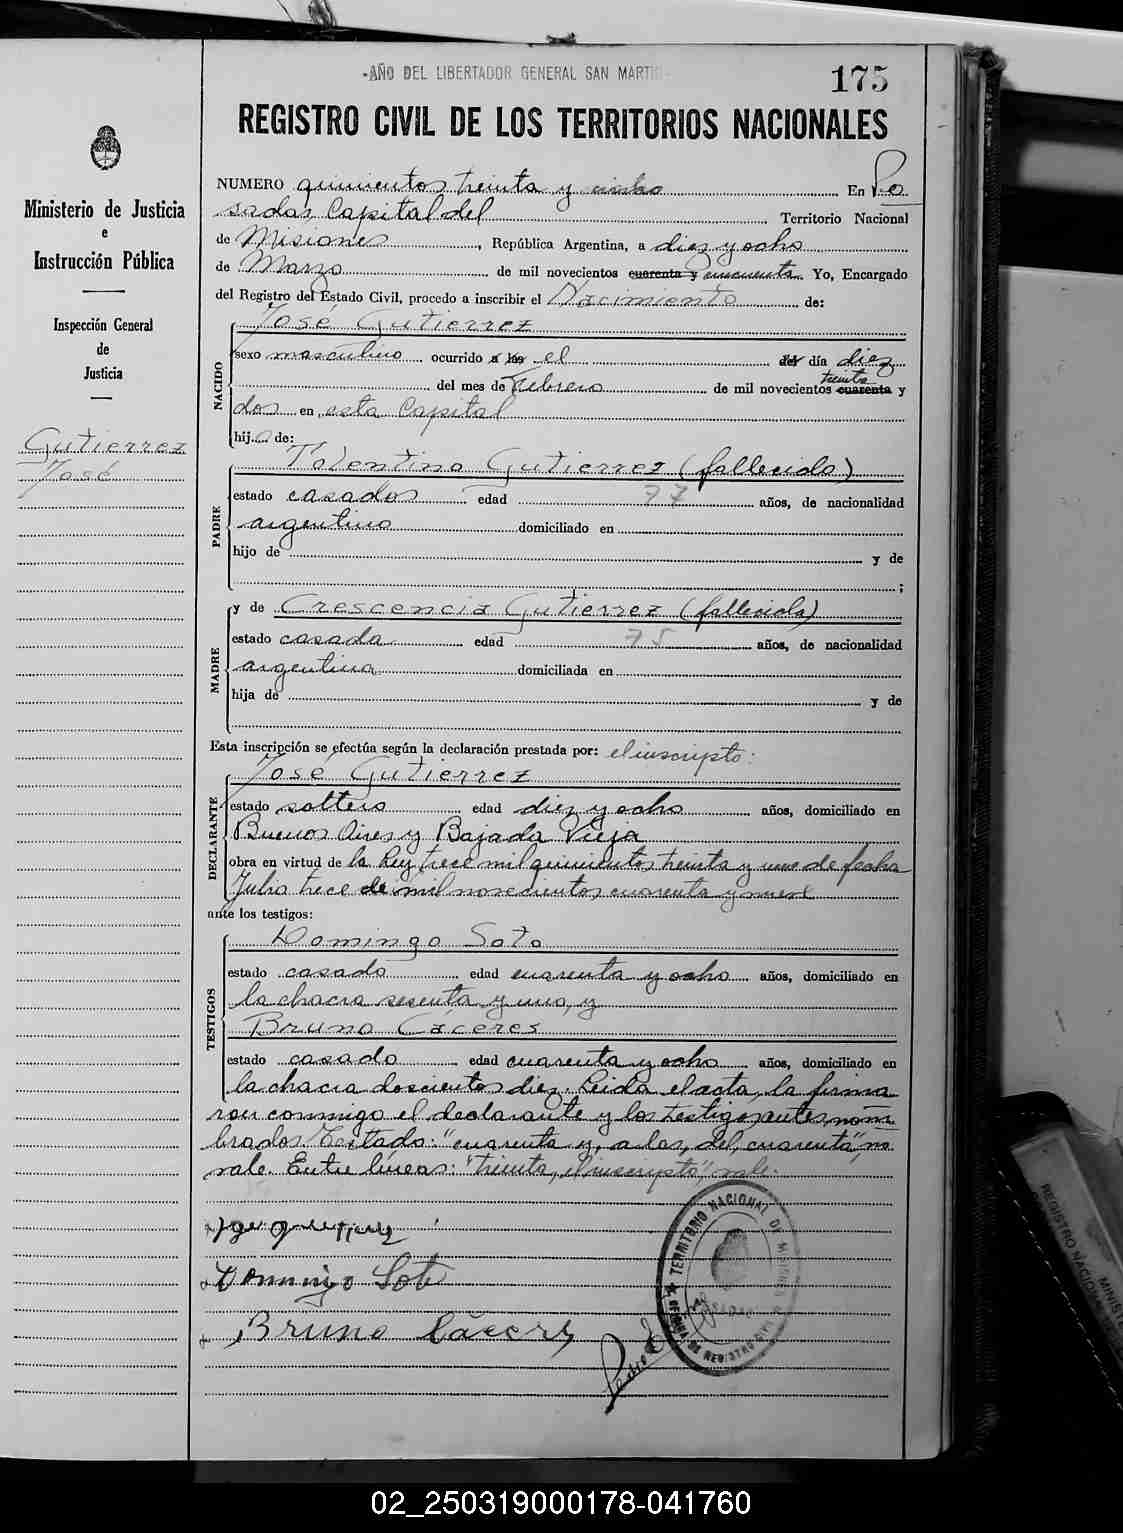 -AÑO DEL LIBERTADOR GENERAL SAN MARTIN-
175
REGISTRO CIVIL DE LOS TERRITORIOS NACIONALES
Ministerio de Justicia
e
Instrucción Pública
Inspección General
de
Justicia
Gutierrez
José
NUMERO quinientos treinta y En Po
sadas Capital del Territorio Nacional
de Misiones, República Argentina, a diez y ocho
de Marzo de mil novecientos cuarenta y cincuenta. Yo, Encargado
del Registro del Estado Civil, procedo a inscribir el Nacimiento de:
NACIDO
José Gutierrez
sexo masculino ocurrido a las el del día diez
del mes de Febrero de mil novecientos cuarenta treinta y
dos en esta Capital
hijo de:
PADRE
Tolentino Gutierrez (fallecido)
estado casados edad 77 años, de nacionalidad
argentino domiciliado en
hijo de y de
;
MADRE
y de Crescencia Gutierrez (fallecida)
estado casada edad 75 años, de nacionalidad
argentina domiciliada en
hija de y de
Esta inscripción se efectúa según la declaración prestada por: el inscripto:
DECLARANTE
José Gutierrez
estado soltero edad diez y ocho años, domiciliado en
Buenos Aires y Bajada Vieja
obra en virtud de la ley trece mil quinientos treinta y uno de fecha
Julio trece de mil novecientos cuarenta y nueve
ante los testigos:
TESTIGOS
Domingo Soto
estado casado edad cuarenta y ocho años, domiciliado en
la chacra sesenta y uno, y
Bruno Cáceres
estado casado edad cuarenta y ocho años, domiciliado en
la chacra doscientos diez. Leida el acta, la firma
ron conmigo el declarante y los testigos antes nom
brados. Testado: "cuarenta y, a las, del, cuarenta", no
vale. Entre líneas: "treinta, el inscripto", vale.
Domingo Soto
Bruno Cáceres
TERRITORIO NACIONAL DE MISIONES
OFICINA DE REGISTRO CIVIL
Pedro
REGISTRO NACIONAL
MINISTE
02_250319000178-041760